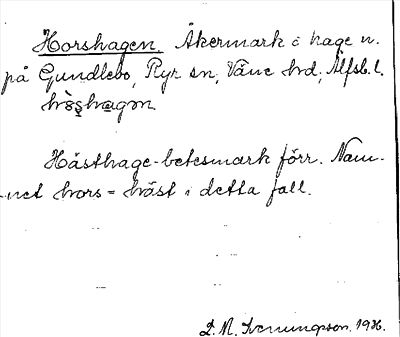 Horshagen. Åkermark i hage n.
på Gundlebo, Ryr sn, Väne hd, Älfsb. l.
Hästhage-betesmark förr. Nam-
net hors = häst i detta fall.
1926.